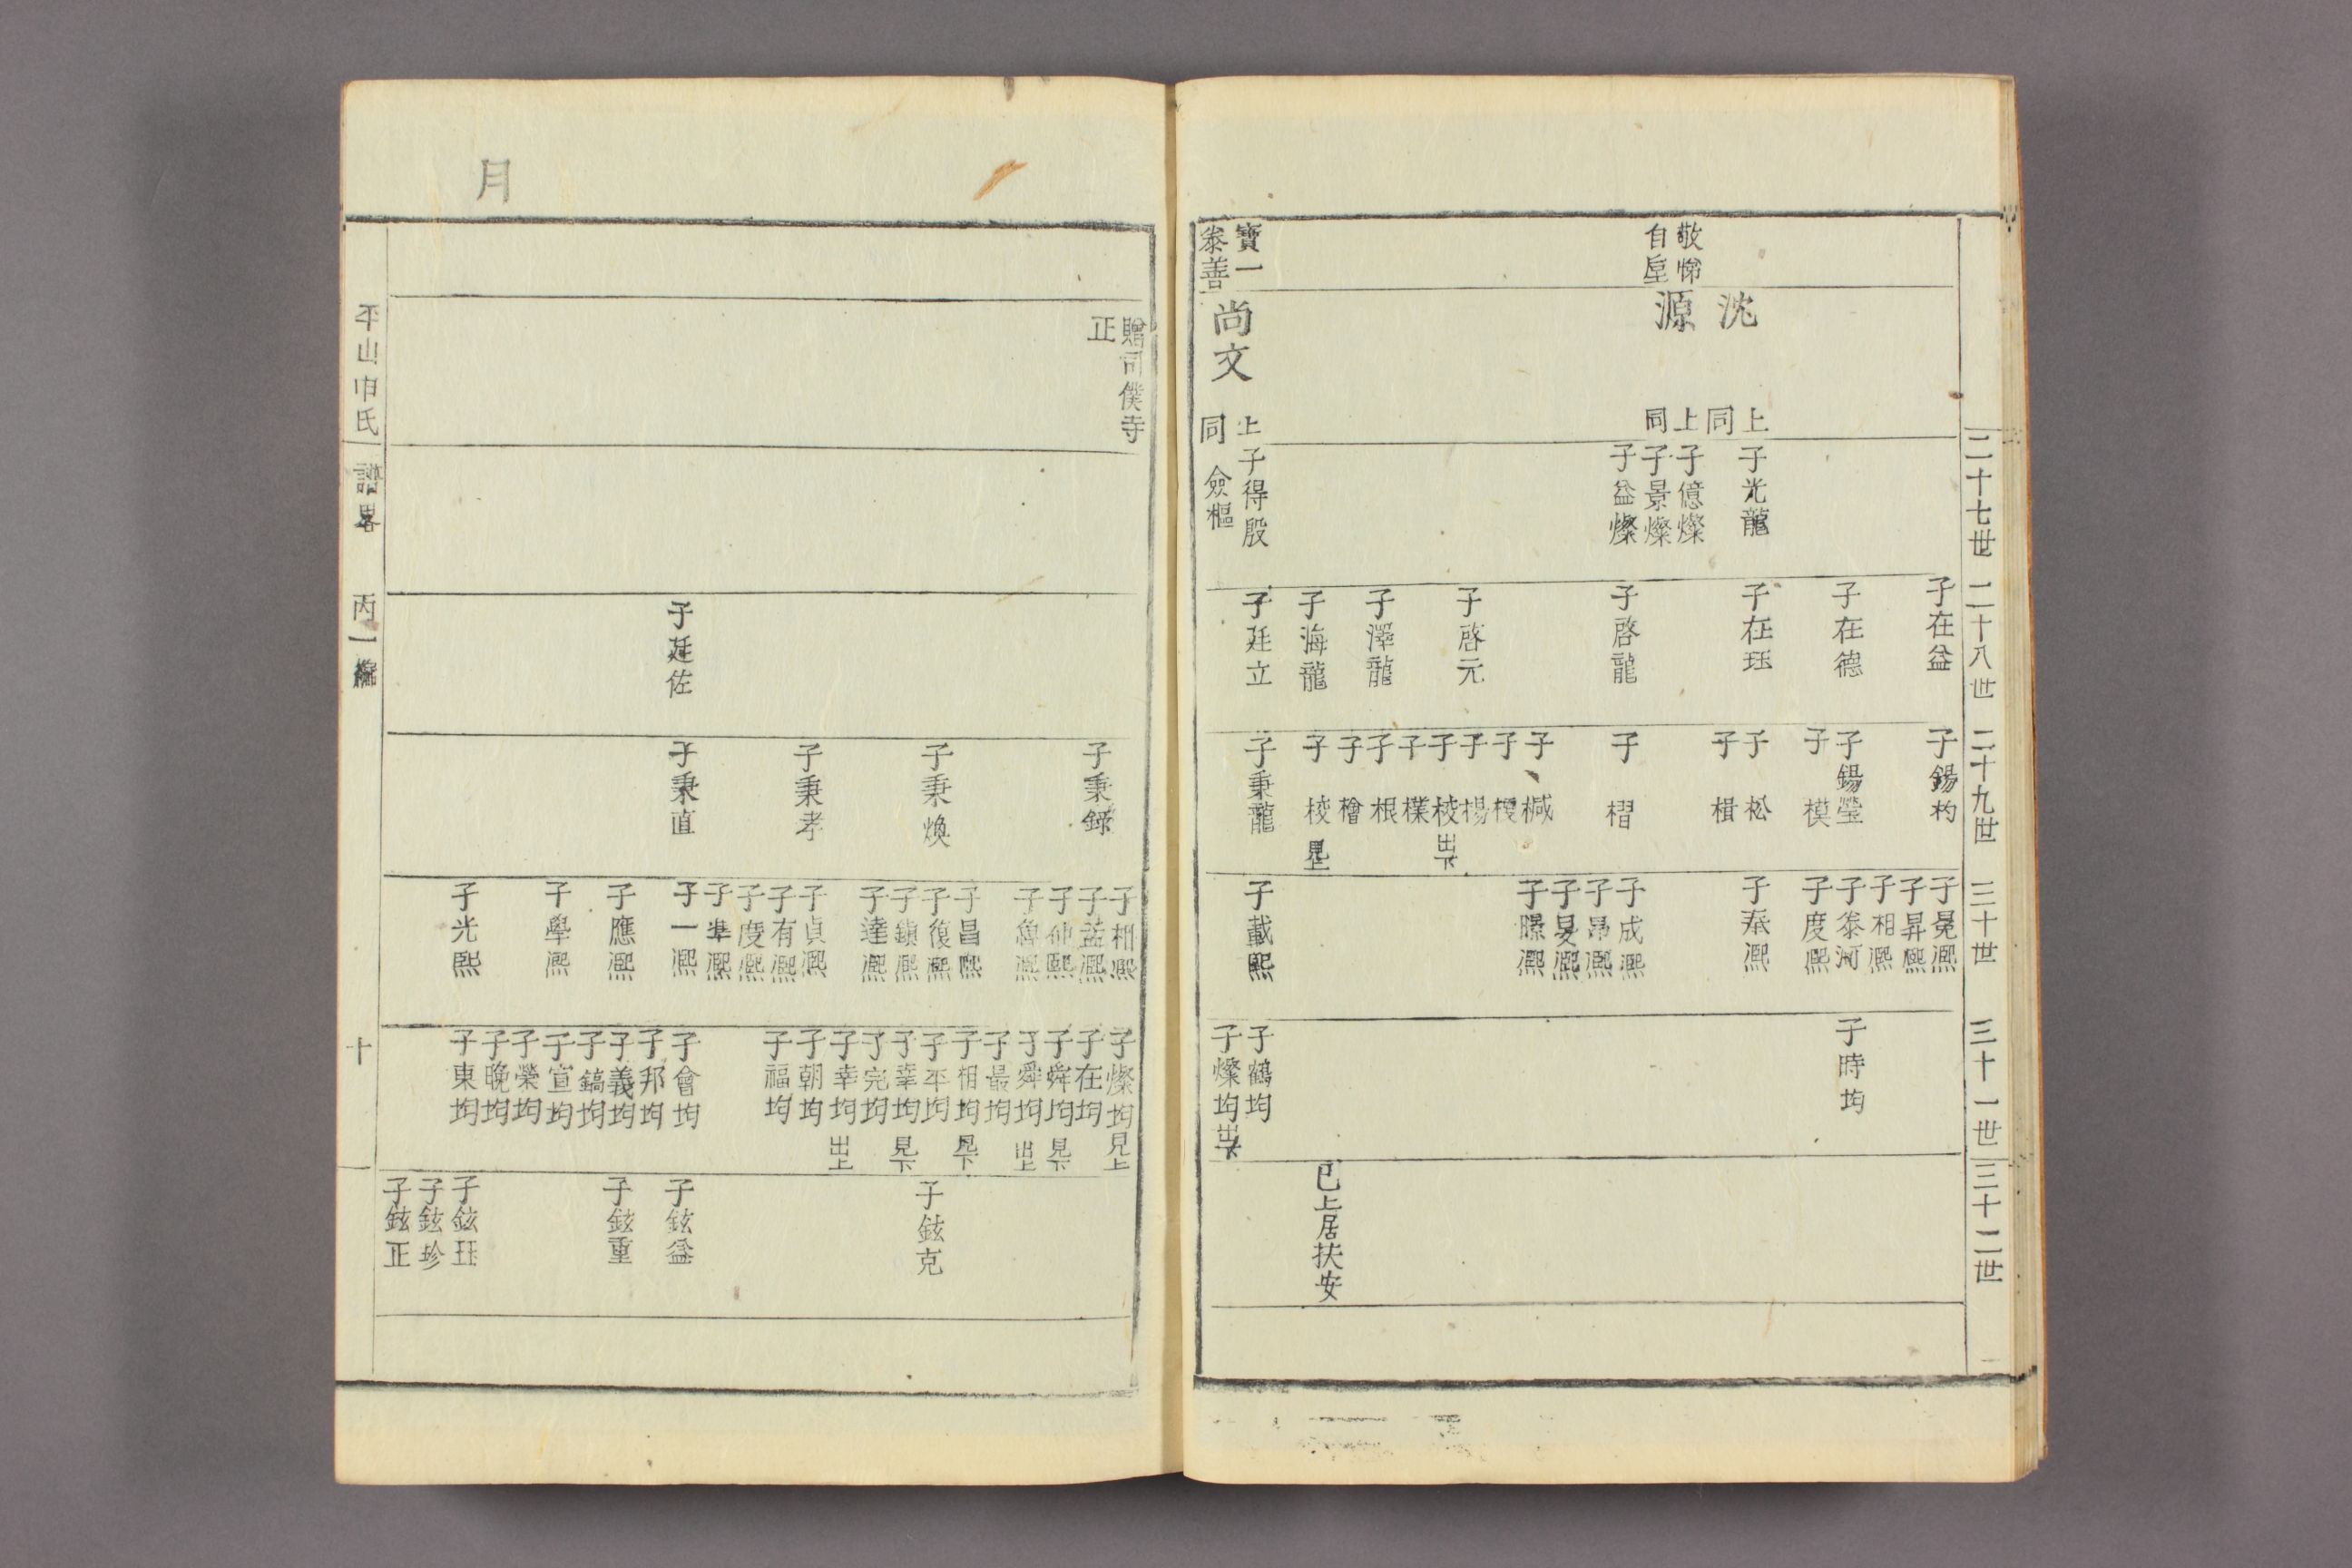 二十七世
二十八世
二十九世
三十世
三十一世
三十二世
敬悌
自星
沈
上同
源
上同
寶一
泰善
尚文
上同
子光龍
子億燦
子景燦
子益燦
子得殷
僉樞
子在益
子在德
子在珏
子啓龍
子啓元
子澤龍
子海龍
子廷立
子錫杓
子錫瑩
子模
子松
子楫
子榴
子榐
子楊
子棱出下
子樸
子根
子檜
子棱見上
子秉龍
子冕凞
子昇凞
子相凞
子泰河
子度凞
子奉凞
子成凞
子昂凞
子旻凞
子暻凞
子載熙
子時均
子鶴均
子燦均出下
已上居扶安
月
贈司僕寺
正
子廷佐
子秉錄
子秉煥
子秉孝
子秉直
子相凞
子益凞
子仲凞
子魯凞
子昌凞
子復凞
子鎭凞
子達凞
子貞凞
子有凞
子度凞
子準凞
子一凞
子應凞
子學凞
子光熙
子燦均見上
子在均
子舜均見下
子舜均出上
子最均
子相均見下
子平均
子幸均見下
子完均
子幸均出上
子朝均
子福均
子會均
子邦均
子義均
子鎬均
子宣均
子榮均
子晩均
子東均
子鉉克
子鉉益
子鉉重
子鉉珏
子鉉珍
子鉉正
平山申氏
譜畧
丙一編
十